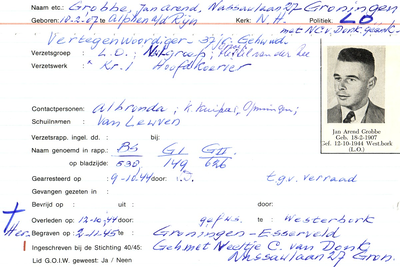 Naam etc.: Grobbe, Jan arend, Nassaulaan 27 Groningen
Geboren: 18-2-07 te Alphen a/d Rijn Kerk: N.H. Politiek: LO
Vertegenwoordiger - 37 jr. Gehuwd met N.C. v. Donk, geank.
Verzetsgroep : L.O.;
Verzetswerk : Kr. / Hoofdkoerier
Contactpersonen: Albronda; K. Kuipal, Opruingen;
Schuilnamen : van Leuven
Verzetsrapp. ingel. dd. : bij:
Naam genoemd in rapp: BS GI GII
op bladzijde: 538 149 626
Gearresteerd op : 9-10-44 door: t.g.v. verraad
Gevangen gezeten in :
Bevrijd op : uit door:
Overleden op: 12-10-44 door: gefus. te: Westerbork
Her Begraven op : 2-11-45 te: Groningen - Esserveld
Ingeschreven bij de Stichting 40/45: Geh met Neeltje C. van Donk
Lid G.O.I.W. geweest: Ja / Neen Nassaulaan 27 Gron.
Jan Arend Grobbe
Geb. 18-2-1907
Gef. 12-10-1944 Westbork
(L.O.)